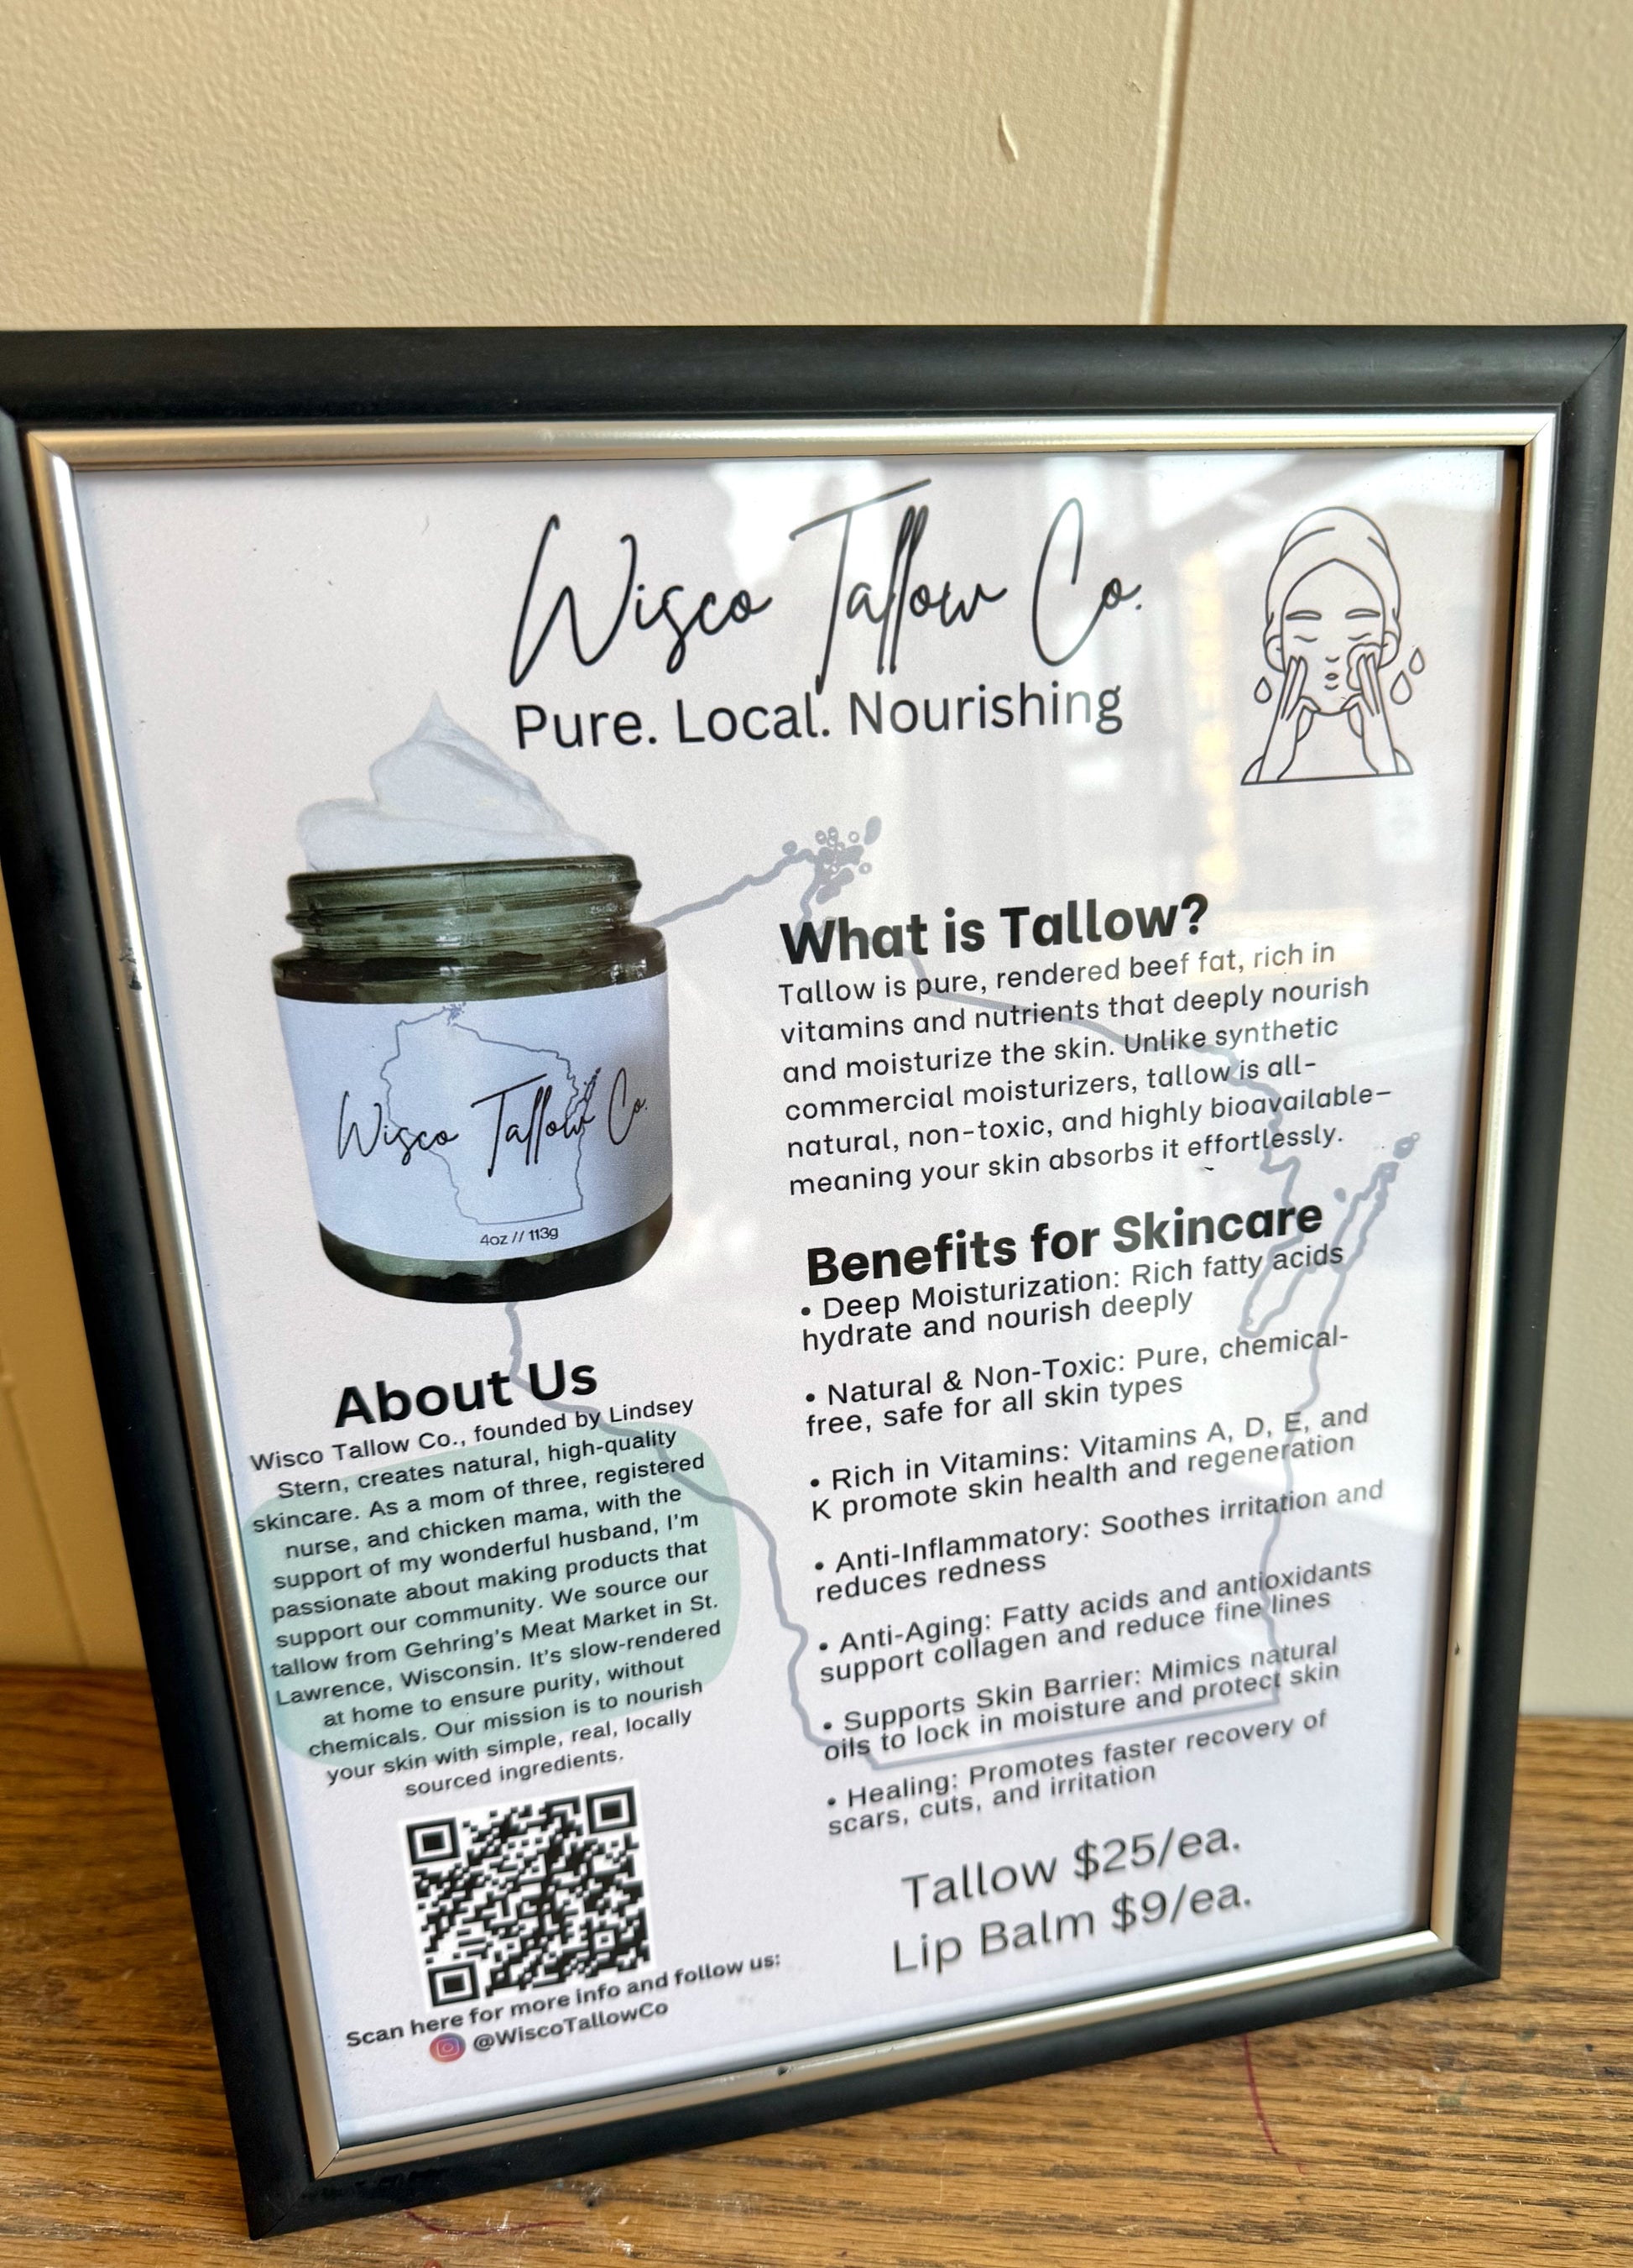 Wisco Tallow Co.
Pure. Local. Nourishing
Wisco Tallow Co.
4oz // 113g
About Us
Wisco Tallow Co., founded by Lindsey
Stern, creates natural, high-quality
skincare. As a mom of three, registered
nurse, and chicken mama, with the
support of my wonderful husband, I'm
passionate about making products that
support our community. We source our
tallow from Gehring's Meat Market in St.
Lawrence, Wisconsin. It's slow-rendered
at home to ensure purity, without
chemicals. Our mission is to nourish
your skin with simple, real, locally
sourced ingredients.
Scan here for more info and follow us:
@WiscoTallowCo
What is Tallow?
Tallow is pure, rendered beef fat, rich in
vitamins and nutrients that deeply nourish
and moisturize the skin. Unlike synthetic
commercial moisturizers, tallow is all-
natural, non-toxic, and highly bioavailable–
meaning your skin absorbs it effortlessly.
Benefits for Skincare
• Deep Moisturization: Rich fatty acids
hydrate and nourish deeply
• Natural & Non-Toxic: Pure, chemical-
free, safe for all skin types
• Rich in Vitamins: Vitamins A, D, E, and
K promote skin health and regeneration
• Anti-Inflammatory: Soothes irritation and
reduces redness
• Anti-Aging: Fatty acids and antioxidants
support collagen and reduce fine lines
• Supports Skin Barrier: Mimics natural
oils to lock in moisture and protect skin
• Healing: Promotes faster recovery of
scars, cuts, and irritation
Tallow $25/ea.
Lip Balm $9/ea.